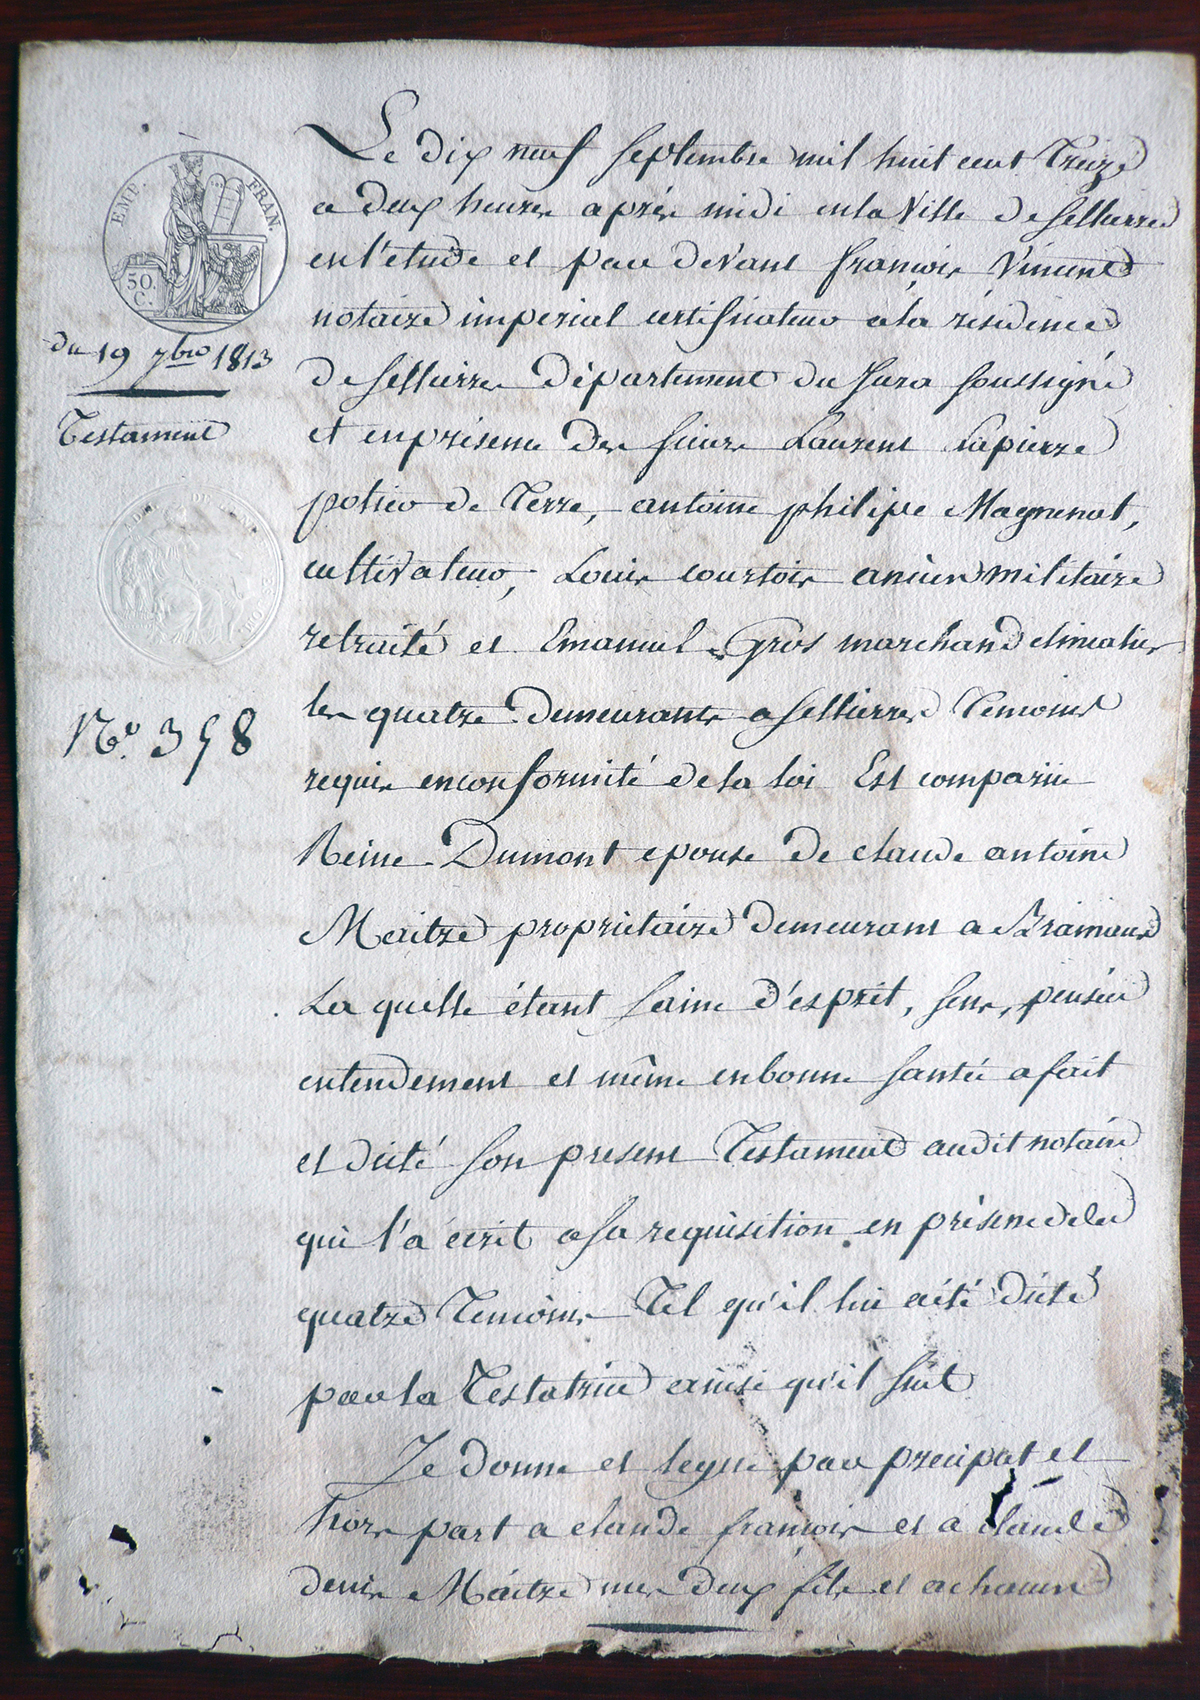 EMP. FRAN.
50.
C.
du 19 7bre 1813
Testament
No. 358
Le dix neuf Septembre mil huit cent Treize
a deux heures après midi en la Ville de Sellierres
en l'étude et par devant françois Vincent
notaire impérial certificateur a la résidence
de Sellierres département du Jura Soussigné
et en présence des Sieurs Laurent Lapierre
potier de Terre, antoine philipe Magnenat,
cultivateur, Louis courtois ancien militaire
retraité et Emanuel Gros marchand
les quatre demeurants a Sellierres Temoins
requis en conformité de la loi Est comparue
Reine Dumont epouse de claude antoine
Maitre propriétaire demeurant a Brainans
La quelle étant Saine d'esprit, Sens, pensée
entendement et même en bonne Santé a fait
et dicté Son present Testament audit notaire
qui l'a écrit a Sa requisition en présence des
quatre Temoins Tel qu'il lui a été dicté
par la Testatrice ainsi qu'il Suit
Je donne et legue par preciput et
hors part a claude françois et a claude
denis Maitre mes deux fils et a chacun